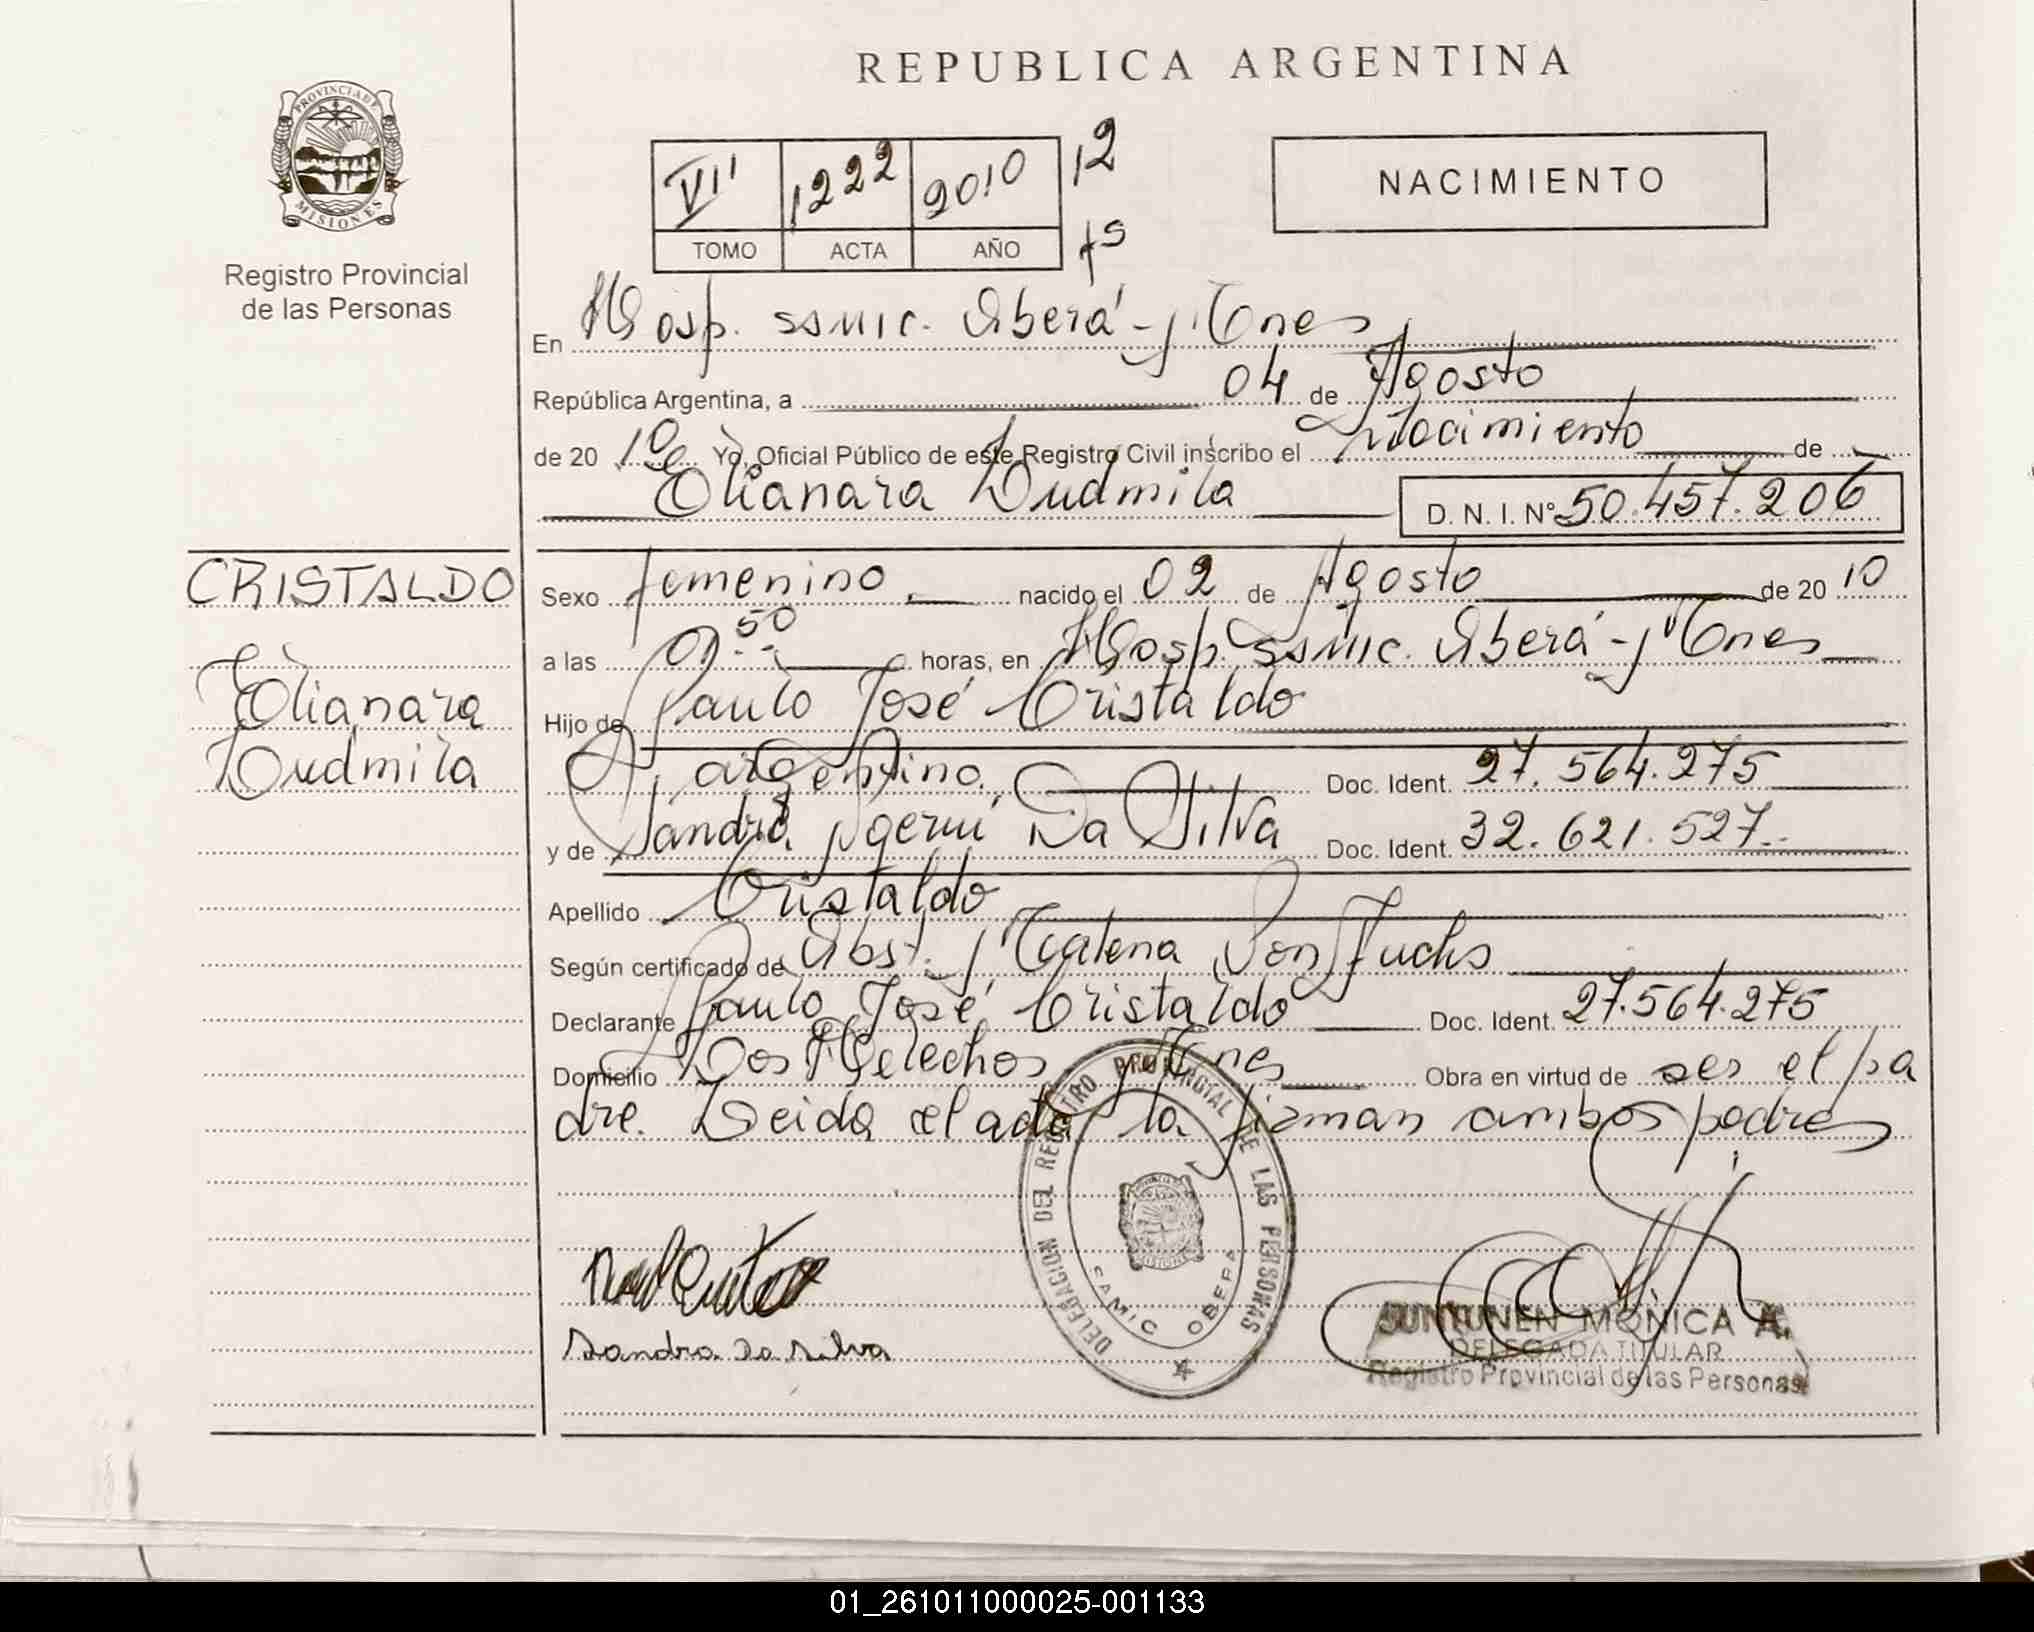 REPUBLICA ARGENTINA
PROVINCIA DE
MISIONES
Registro Provincial
de las Personas
VII 1222 2010 12
TOMO ACTA AÑO fs
NACIMIENTO
En Hosp. SSMIC. Oberá - Mnes
República Argentina, a 04 de Agosto
de 20 10 Yo, Oficial Público de este Registro Civil inscribo el Nacimiento de
Elianara Ludmila D. N. I. Nº 50.457.206
CRISTALDO
Elianara
Ludmila
Sexo femenino, nacido el 02 de Agosto de 20 10
a las 01:50 horas, en Hosp. SSMIC. Oberá - Mnes
Hijo de Paulo José Cristaldo
argentino, Doc. Ident. 27.564.275
y de Sandra Da Silva Doc. Ident. 32.621.527
Apellido Cristaldo
Según certificado de Obst. Von Fuchs
Declarante Paulo José Cristaldo Doc. Ident. 27.564.275
Domicilio Dos Helechos Mnes Obra en virtud de ser el pa
dre. Leida el acta la firman ambos padres
DELEGACION DEL REGISTRO PROVINCIAL DE LAS PERSONAS
SAMIC OBERA
Sandra Da Silva
JUNTUNEN MONICA A.
DELEGADA TITULAR
Registro Provincial de las Personas
01_261011000025-001133